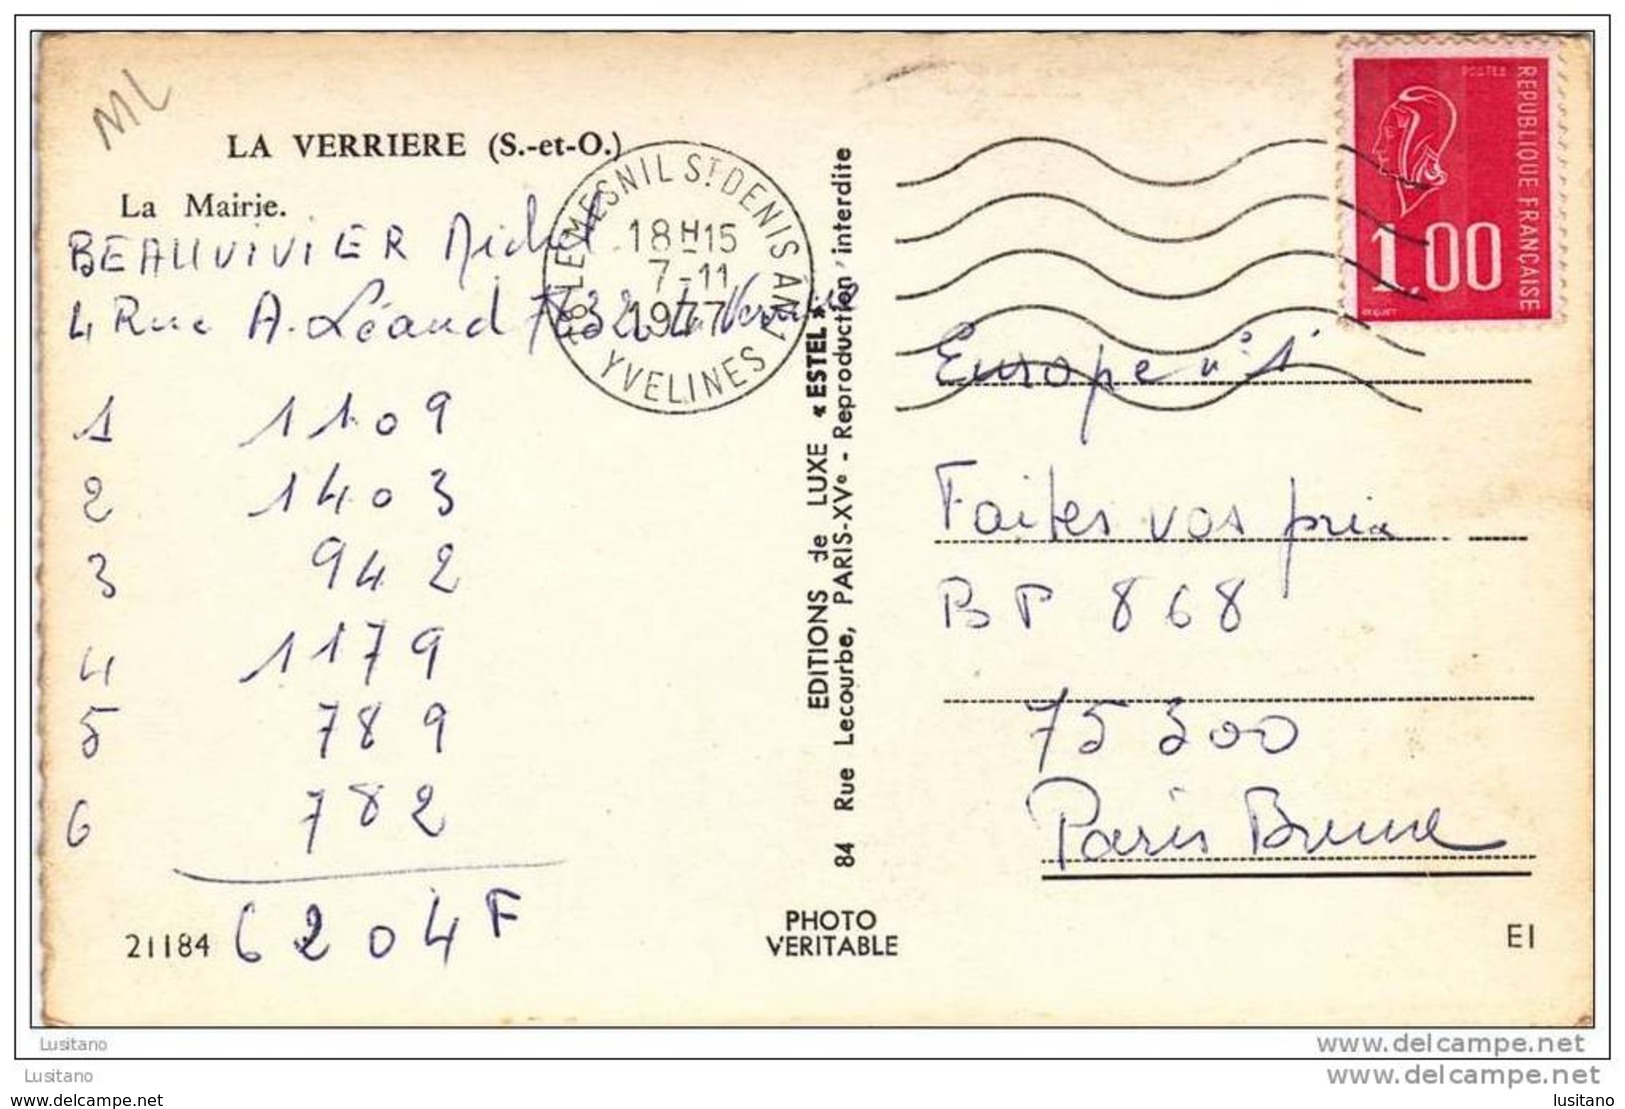 ML
LA VERRIERE (S.-et-O.)
La Mairie.
BEAUVIVIER Michel
4 Rue A. Léaud
1 1109
2 1403
3 942
4 1179
5 789
6 782
6204 F
21184
78 LE MESNIL ST DENIS AN 1
18H15
7-11
1977
YVELINES
EDITIONS de LUXE «ESTEL»
84 Rue Lecourbe, PARIS-XVe - Reproduction interdite
PHOTO
VERITABLE
POSTES
REPUBLIQUE FRANÇAISE
1.00
BEQUET
Europe n° 1
Faites vos prix
BP 868
75 300
Paris Brune
EI
Lusitano
www.delcampe.net
Lusitano
www.delcampe.net
www.delcampe.net
lusitano